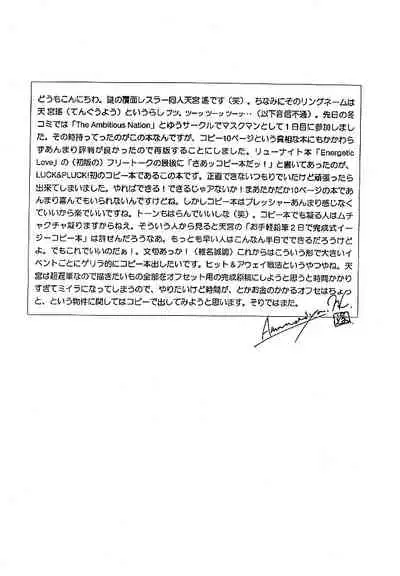 どうもこんにちわ。謎の覆面レスラー同人天宮遙です（笑）。ちなみにそのリングネームは
天宮遙（てんぐうよう）というらしプツ、ツーッツーッツーナ…（以下音信不通）。先日の冬
コミでは「The Ambitious Nation」とゆうサークルでマスクマンとして１日目に参加しまし
た。その時持ってったのがこの本なんですが、コピー10ページという貧相な本にもかかわら
ずあんまり評判が良かったので再版することにしました。リューナイト本「Energetic
Love」の（初版の）フリートークの最後に「さあッコピー本だッ！」と書いてあったのが、
LUCK&PLUCK!初のコピー本であるこの本です。正直できないつもりでいたけど頑張ったら
出来てしまいました。やればできる！できるじゃアないか！まあたかだか10ページの本であ
んまり喜んでもいられないんですけどね。しかしコピー本はプレッシャーあんまり感じなく
ていいから楽でいいですね。トーンもはらんでいいしな（笑）。コピー本でも凝る人はムチ
ャクチャ凝りますからねえ。そういう人から見ると天宮の「お手軽鉛筆２日で完成式イ
ージーコピー本」は許せんだろうなあ。もっとも早い人はこんなん半日でできるだろうけど
よ。でもこれでいいのだぁ！。文句あっか！（椎名誠調）これからはこういう形で大きいイ
ベントごとにゲリラ的にコピー本出したいです。ヒット＆アウェイ戦法というやつやね。天
宮は超遅筆なので描きたいもの全部をオフセット用の完成原稿にしようと思うと時間かかり
すぎてミイラになってしまうので、やりたいけど時間が、とかお金のかかるオフセはちょっ
と、という物件に関してはコピーで出してみようと思います。そりではまた。